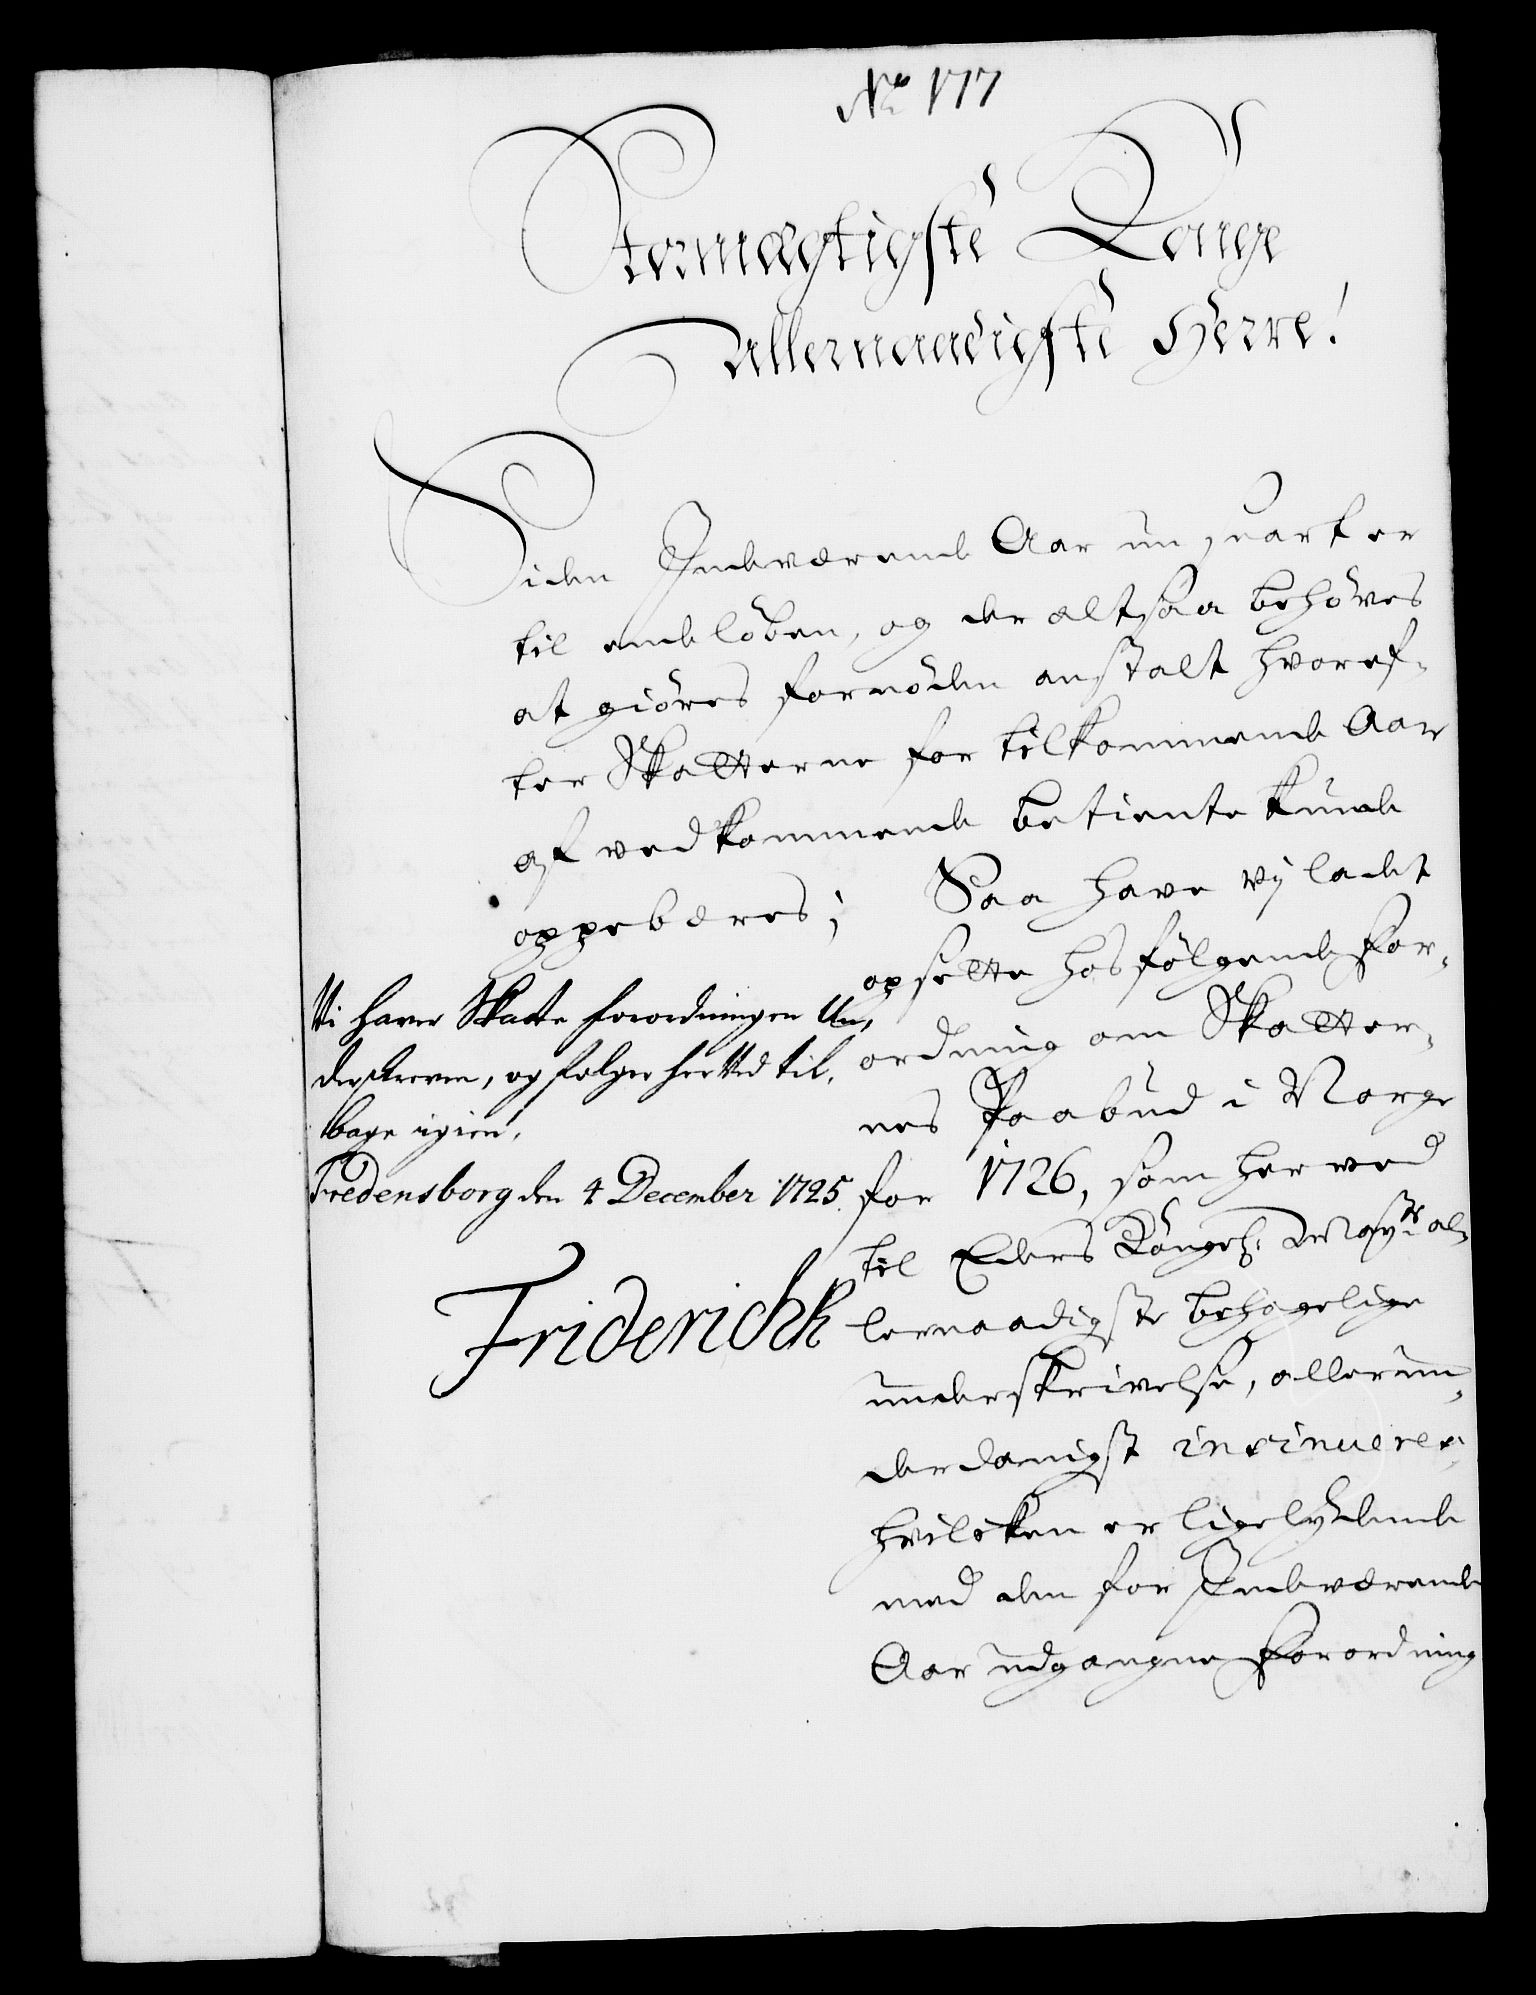 No 177
Stormægtigste Konge
Allernaadigste Herre!
Siden Indeværende Aar nu snart er
til endeløben, og der altsaa behøves
at giøres fornøden anstalt hvoref-
ter Skatterne for tilkommende Aar
af vedkommende betiente kunde
oppebæres; Saa have vij ladet
opsette hosfølgende For-
ordning om Skatter-
nes Paabud i Norge
for 1726, som herved
til Eders Kongel: Mayts al-
lernaadigste behagelige
underskrivelse, allerun-
derdanigst insinueres,
hvilcken er ligelydende
med den for Indeværende
Aar udgangne Forordning
Vi haver Skatte forordningen Un-
derskreven, og følger her Ved til-
bage igien.
Fredensborg den 4 December 1725.
Friderich R